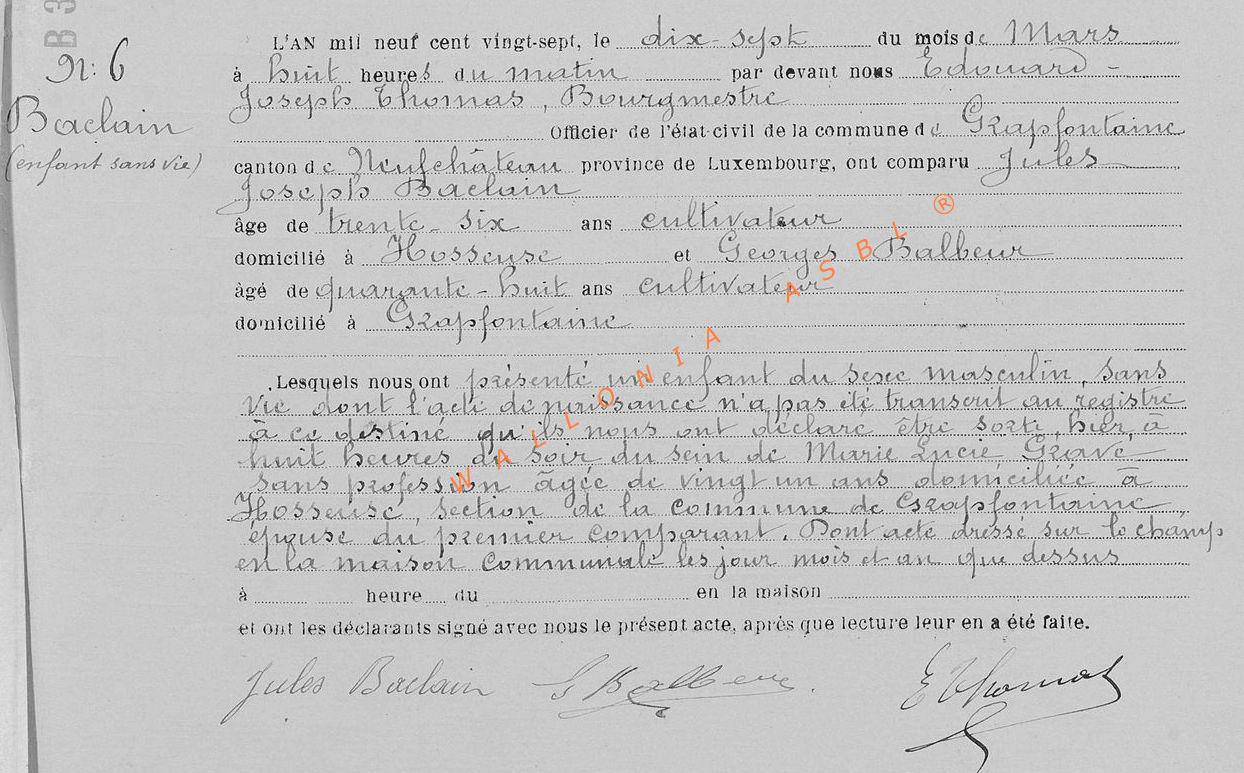 B 3
N: 6
Baclain
(enfant sans vie)
L'AN mil neuf cent vingt-sept, le dix-sept du mois de Mars
à huit heures du matin par devant nous Edouard-
Joseph Thomas, Bourgmestre
Officier de l'état-civil de la commune de Grapfontaine
canton de Neufchâteau province de Luxembourg, ont comparu Jules
Joseph Baclain
âge de trente-six ans cultivateur
domicilié à Hosseuse et Georges Balbeur
âgé de quarante-huit ans cultivateur
domicilié à Grapfontaine
Lesquels nous ont présenté un enfant du sexe masculin, sans
vie dont l'acte de naissance n'a pas été transcrit au registre
à ce destiné qu'ils nous ont déclaré être sorti, hier, à
huit heures du soir du sein de Marie Lucie Grave
sans profession âgée de vingt un ans domiciliée à
Hosseuse, section de la commune de Grapfontaine
épouse du premier comparant. Dont acte dressé sur le champ
en la maison Communale les jour mois et an que dessus
à heure du en la maison
et ont les déclarants signé avec nous le présent acte, après que lecture leur en a été faite.
Jules Baclain G Balbeur. E Thomas
WALLONIA ASBL ®